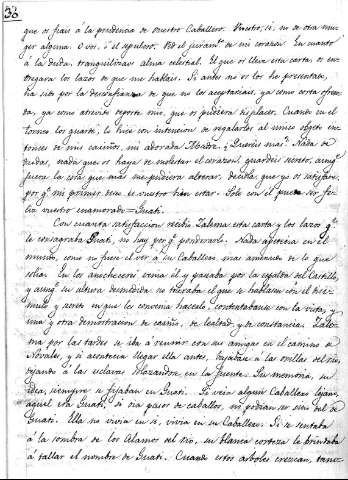 38
que os fiais á la prudencia de vuestro Caballero. Vuestro, si, no de otra mu-
ger alguna. O vos, ó el sepulcro. Ved el juramto de mi corazon. En cuanto
á la deuda, tranquilizaos alma celestial. El que os lleva esta carta os en-
tregará los lazos de que me hablais. Si antes no os los he presentado,
ha sido por la desconfianza de que no los aceptariais, ya como corta ofren-
da, ya como atrevido reporte mio, que os pudiera displacer. Cuando en el
torneo los guardé, lo hice con intencion de regalarlos al unico objeto en-
tonces de mis cariños, mi adorada Madre. ¿Quereis mas? Nada de
deudas, nada que os haya de molestar el corazon: guardeis secreto, aunqe
fuera la cosa que mas me pudiera alterar, decidla que yo os satisfaré,
porqe mi primer deseo es vuestro bien estar. Solo con el puede ser fe-
liz vuestro enamorado = Guati.
Con cuanta satisfaccion recibió Zulema esta carta y los lazos qe
le consagraba Guati, no hay porqe ponderarlo. Nada apetecia en el
mundo, como no fuese el ver á su Caballero mas amenudo de lo que
solia. En los anocheceres venia él y pasaba por la espalda del Castillo,
y aunqe su altura desmedida no dejaba el que se hablasen con el tier-
mulo y secreto en que les convenia hacerlo, contentabanse con la vista, y
una y otra demostracion de cariño, de lealtad y de constancia. Zule-
ma por las tardes se iba á reunir con sus amigas en el camino de
Novales, y si acontecia llegar ella antes, bajaba á las orillas del rio,
dejando á las esclavas Mozandra en la fuente. Su memoria, su
idea, siempre se fijaban en Guati. Si veia algun Caballero lejano,
aquel era Guati; si oia pasos de caballos, no podian ser sino del de
Guati. Ella no vivia en si, vivia en su Caballero. Si se sentaba
á la sombra de los Alamos del rio, su blanca corteza la brindaba
á tallar el nombre de Guati. Cuando estos arboles crezcan, tam-